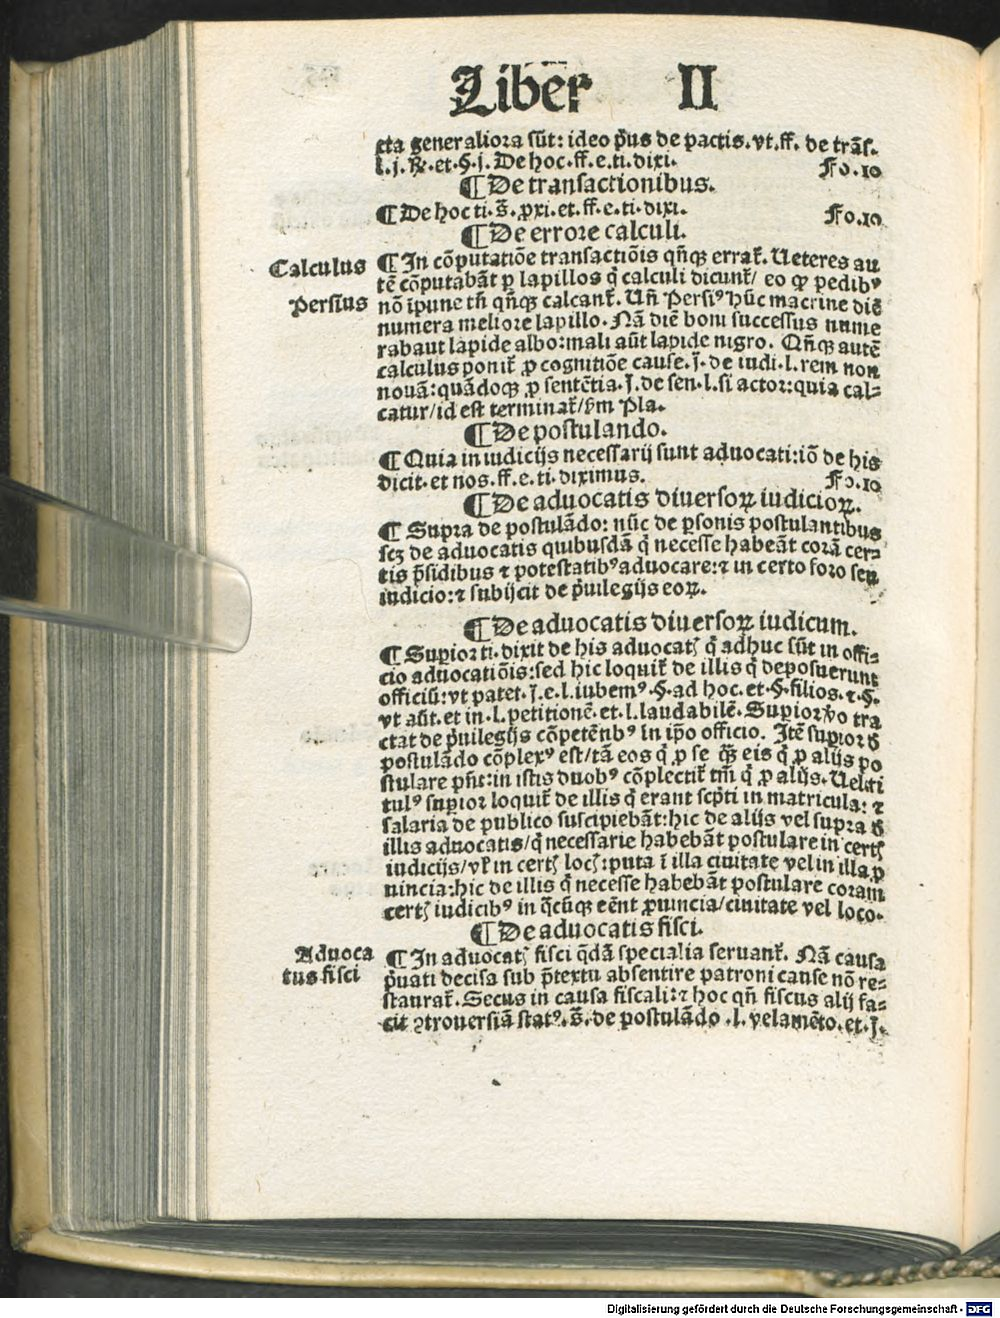 Liber II
cta generaliora sūt: ideo p̄us de pactis. vt. ff. de trās.
l. j. R̷. et. §. j. De hoc. ff. e. ti. dixi. Fo. 10
¶ De transactionibus.
¶ De hoc ti. s̄. ꝓxi. et. ff. e. ti. dixi. Fo. 10
¶ De errore calculi.
Calculus ¶ In cōputatiōe transactiōis qn̄qꝫ errat̄. Ueteres au
tē cōputabāt ꝑ lapillos q̄ calculi dicunt̄/ eo ꝙ pedibꝰ
Persius nō īpune tn̄ qn̄qꝫ calcant̄. Un̄ Persiꝰ hūc macrine diē
numera meliore lapillo. Nā diē boni successus nume
rabaut lapide albo: mali aūt lapide nigro. Qn̄qꝫ autē
calculus ponit̄ ꝓ cognitiōe cause. j̄. de iudi. l. rem non
nouā: quādoqꝫ ꝓ sentētia. j̄. de sen. l. si actor: quia cal-
catur/ id est terminat̄/ ẜm Pla.
¶ De postulando.
¶ Quia in iudicijs necessarij sunt aduocati: iō de his
dicit. et nos. ff. e. ti. diximus. Fo. 10
¶ De aduocatis diuersoꝝ iudicioꝝ.
¶ Supra de postulādo: nūc de ꝑsonis postulantibus
scꝫ de aduocatis quibusdā q̄ necesse habeāt corā cer-
tis p̄sidibus ⁊ potestatibꝰ aduocare: ⁊ in certo foro seu
iudicio: ⁊ subijcit de p̄uilegijs eoꝝ.
¶ De aduocatis diuersoꝝ iudicum.
¶ Superior ti. dixit de his aduocatꝭ q̄ adhuc sūt in offi-
cio aduocatiōis: sed hic loquit̄ de illis q̄ deposuerunt
officiū: vt patet. j̄. e. l. iubemꝰ. §. ad hoc. et. §. filios. ⁊. §.
vt aūt. et in. l. petitionē. et. l. laudabilē. Suꝑior v̄o tra
ctat de p̄uilegijs cōpetētibꝰ in ip̄o officio. Itē suꝑior đ
postulādo cōplexꝰ est/ tā eos q̄ ꝑ se q̄ꝫ eis q̄ ꝑ alijs po
stulare pn̄t: in istis duobꝰ cōplectit̄ tm̄ q̄ ꝑ alijs. Uel ti
tulꝰ suꝑior loquit̄ de illis q̄ erant scp̄ti in matricula: ⁊
salaria de publico suscipiebāt: hic de alijs vel supra đ
illis aduocatis/ q̄ necessarie habebāt postulare in certꝭ
iudicijs/ vl̄ in certꝭ locꝭ: puta ī illa ciuitate vel in illa ꝓ
uincia: hic de illis q̄ necesse habebāt postulare coram
certꝭ iudicibꝰ in q̄cūqꝫ eēnt ꝓuincia/ ciuitate vel loco.
¶ De aduocatis fisci.
Aduoca ¶ In aduocatꝭ fisci q̄dā specialia seruant̄. Nā causa
tus fisci p̄uati decisa sub p̄textu absentire patroni cause nō re-
staurat̄. Secus in causa fiscali: ⁊ hoc qn̄ fiscus alij fa-
cit ꝯtrouersiā statꝰ. s̄. de postulādo. l. velamēto. et. j̄.
Digitalisierung gefördert durch die Deutsche Forschungsgemeinschaft - DFG